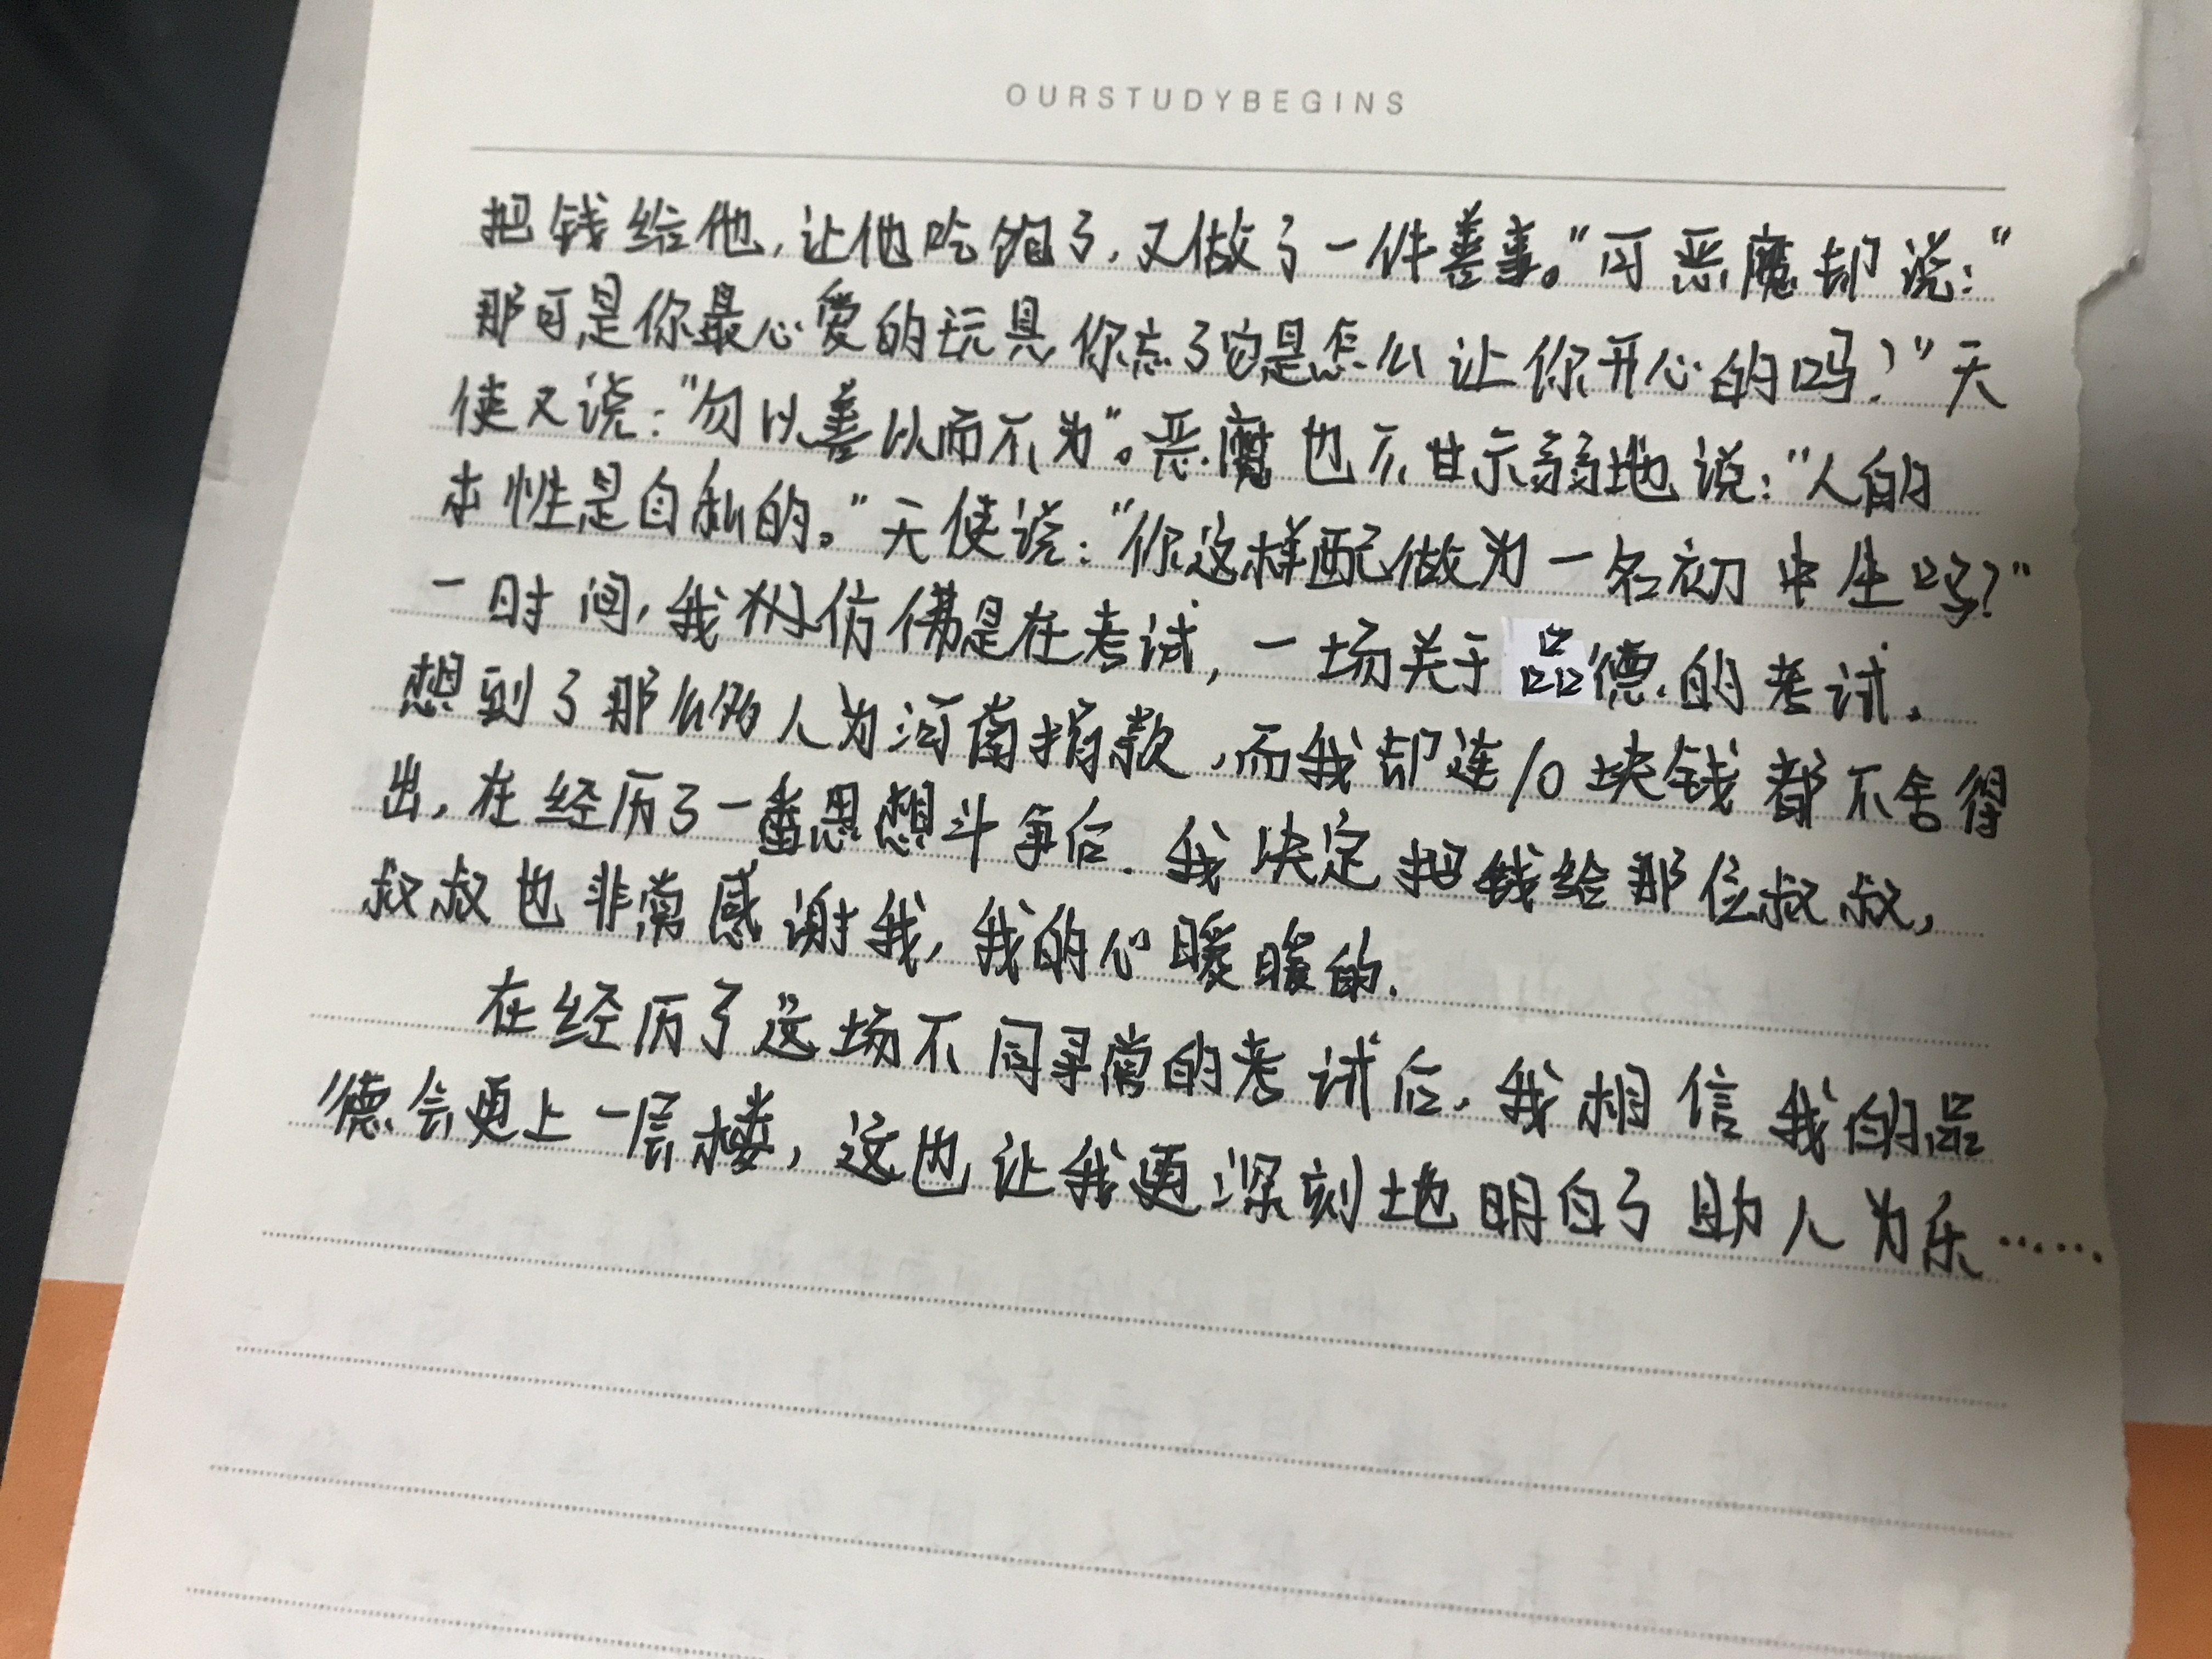 OURSTUDYBEGINS
把钱给他,让他吃饱了,又做了一件善事。"可恶魔却说:"
那可是你最心爱的玩具,你忘了它是怎么让你开心的吗?"天
使又说:"勿以善以而不为"。恶魔也不甘示弱地说:"人的
本性是自私的。"天使说:"你这样配做为一名初中生吗?"
一时间,我仿佛是在考试,一场关于品德的考试.
想到了那么多人为河南捐款,而我却连10块钱都不舍得
出,在经历了一番思想斗争后.我决定把钱给那位叔叔,
叔叔也非常感谢我,我的心暖暖的.
在经历了这场不同寻常的考试后.我相信我的品
德会更上一层楼,这也让我更深刻地明白了助人为乐……